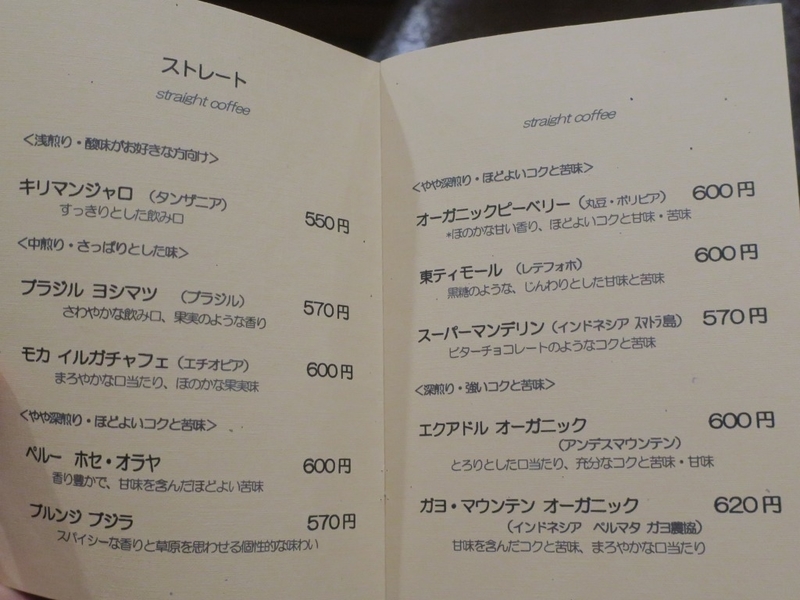 ストレート
straight coffee
<浅煎り・酸味がお好きな方向け>
キリマンジャロ （タンザニア）
すっきりとした飲み口 550円
<中煎り・さっぱりとした味>
ブラジル ヨシマツ （ブラジル） 570円
さわやかな飲み口、果実のような香り
モカ イルガチャフェ（エチオピア） 600円
まろやかな口当たり、ほのかな果実味
<やや深煎り・ほどよいコクと苦味>
ペルー ホセ・オラヤ 600円
香り豊かで、甘味を含んだほどよい苦味
ブルンジ ブジラ 570円
スパイシーな香りと草原を思わせる個性的な味わい
straight coffee
<やや深煎り・ほどよいコクと苦味>
オーガニックピーベリー（丸豆・ボリビア） 600円
*ほのかな甘い香り、ほどよいコクと甘味・苦味
東ティモール （レテフォホ） 600円
黒糖のような、じんわりとした甘味と苦味
スーパーマンデリン（インドネシア スマトラ島） 570円
ビターチョコレートのようなコクと苦味
<深煎り・強いコクと苦味>
エクアドル オーガニック 600円
（アンデスマウンテン）
とろりとした口当たり、充分なコクと苦味・甘味
ガヨ・マウンテン オーガニック 620円
（インドネシア ペルマタ ガヨ農協）
甘味を含んだコクと苦味、まろやかな口当たり